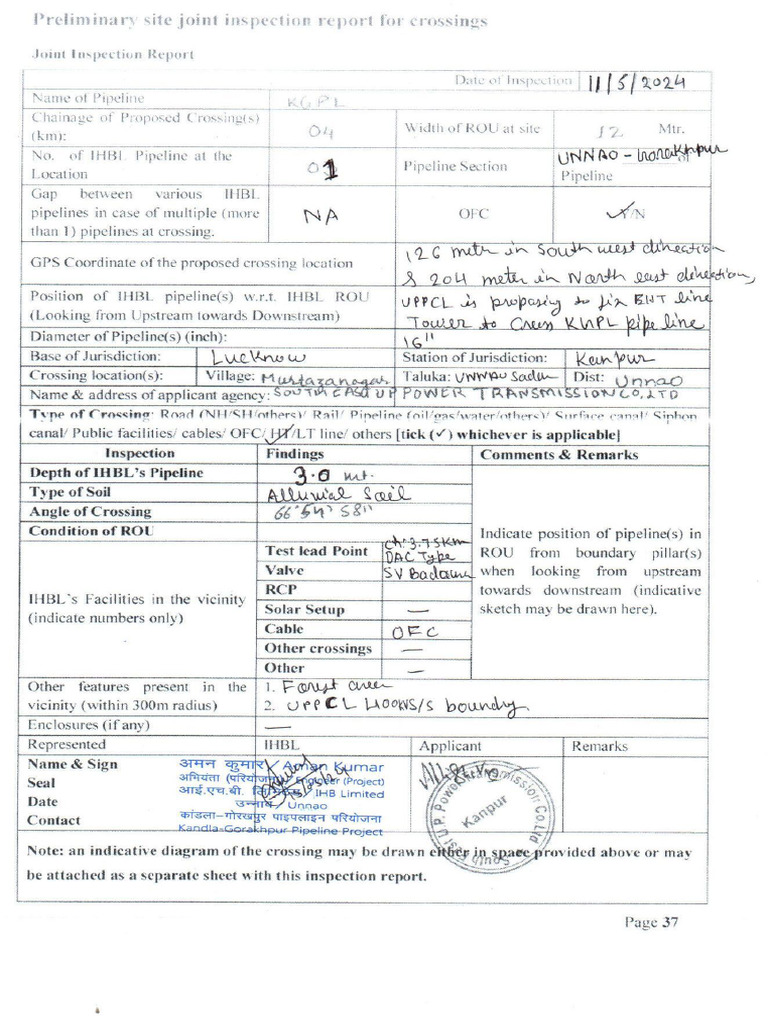 Preliminary site joint inspection report for crossings
Joint Inspection Report
Date of Inspection 11/5/2024
Name of Pipeline KGPL
Chainage of Proposed Crossing(s) (km): 04 Width of ROU at site 12 Mtr.
No. of IHBL Pipeline at the Location 01 Pipeline Section UNNAO - Gorakhpur of Pipeline
Gap between various IHBL pipelines in case of multiple (more than 1) pipelines at crossing. NA OFC Y/N
GPS Coordinate of the proposed crossing location 126 meter in South west direction
& 204 meter in North east direction,
Position of IHBL pipeline(s) w.r.t. IHBL ROU (Looking from Upstream towards Downstream) UPPCL is proposing to fix EHT line
Tower to Cross KGPL pipe line
Diameter of Pipeline(s) (inch): 16"
Base of Jurisdiction: Lucknow Station of Jurisdiction: Kanpur
Crossing location(s): Village: Murtazanagar Taluka: UNNAO Sadar Dist: Unnao
Name & address of applicant agency: SOUTH EAST UP POWER TRANSMISSION CO. LTD
Type of Crossing: Road (NH/SH/others)/ Rail/ Pipeline (oil/gas/water/others)/ Surface canal/ Siphon
canal/ Public facilities/ cables/ OFC/ HT/LT line/ others [tick (✓) whichever is applicable]
Inspection Findings Comments & Remarks
Depth of IHBL's Pipeline 3.0 mt.
Type of Soil Alluvial Soil
Angle of Crossing 66°54' 58"
Condition of ROU
IHBL's Facilities in the vicinity
(indicate numbers only)
Test lead Point Ch: 3.75Km
DAC Type
Valve SV
RCP
Solar Setup —
Cable OFC
Other crossings —
Other —
Indicate position of pipeline(s) in
ROU from boundary pillar(s)
when looking from upstream
towards downstream (indicative
sketch may be drawn here).
Other features present in the
vicinity (within 300m radius)
1. Forest area
2. UPPCL 400KV S/S boundry.
Enclosures (if any) —
Represented IHBL Applicant Remarks
Name & Sign
Seal
Date
Contact
अमन कुमार / Aman Kumar
अभियंता (परियोजना) Engineer (Project)
आई.एच.बी. लिमिटेड IHB Limited
उन्नाव / Unnao
कांडला-गोरखपुर पाइपलाइन परियोजना
Kandla-Gorakhpur Pipeline Project
South East U.P. Power Transmission Co Ltd
Kanpur
Note: an indicative diagram of the crossing may be drawn either in space provided above or may
be attached as a separate sheet with this inspection report.
Page 37